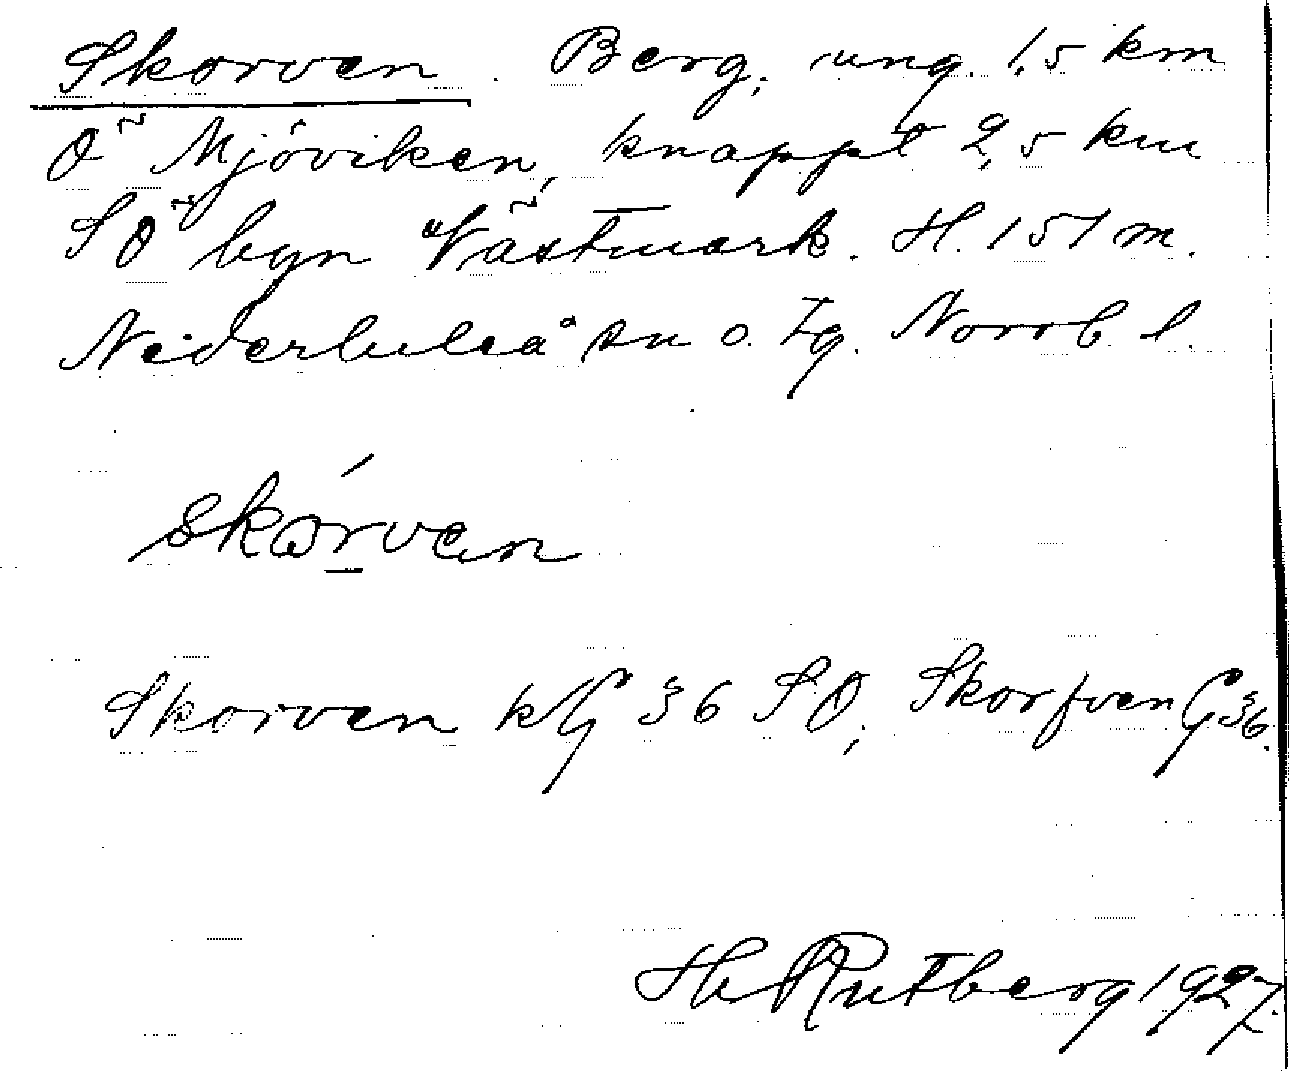 Skorven. Berg, ung. 1,5 km
Ö Mjöviken, knappt 2,5 km
SÖ byn Västmark. H. 151 m.
Nederluleå sn o. tg. Norrb. l.
skórven
Skorven kG 36 SO; Skorfven G 36.
Hj Rutberg 1927.